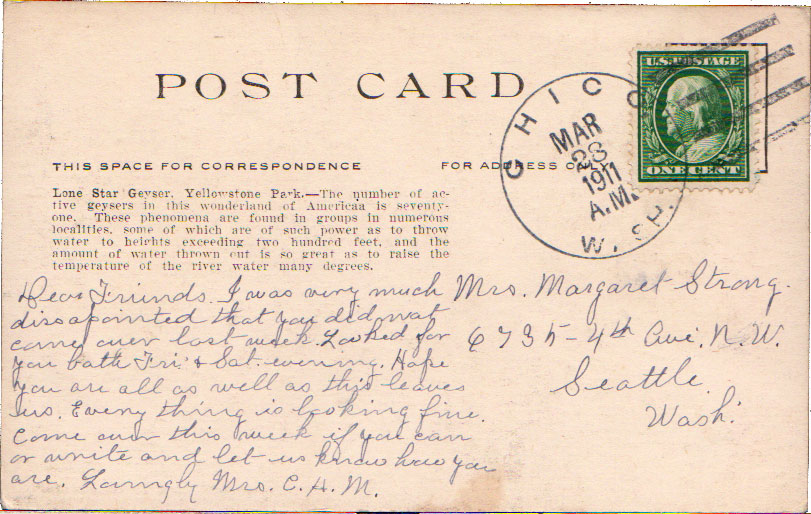 POST CARD
CHICO
MAR
28
1911
A.M.
WASH.
U.S. POSTAGE
ONE CENT
THIS SPACE FOR CORRESPONDENCE
FOR ADDRESS ONLY
Lone Star Geyser, Yellowstone Park.—The number of ac-
tive geysers in this wonderland of Americaa is seventy-
one. These phenomena are found in groups in numerous
localities, some of which are of such power as to throw
water to heights exceeding two hundred feet, and the
amount of water thrown out is so great as to raise the
temperature of the river water many degrees.
Dear Friends. I was very much
dissapointed that you did not
come over last week. Looked for
you both Fri. & Sat. evening. Hope
you are all as well as this leaves
us. Every thing is looking fine.
Come over this week if you can
or write and let us know how you
are. Lovingly Mrs. C. H. M.
Mrs. Margaret Strong.
6735-4th Ave. N.W.
Seattle
Wash.